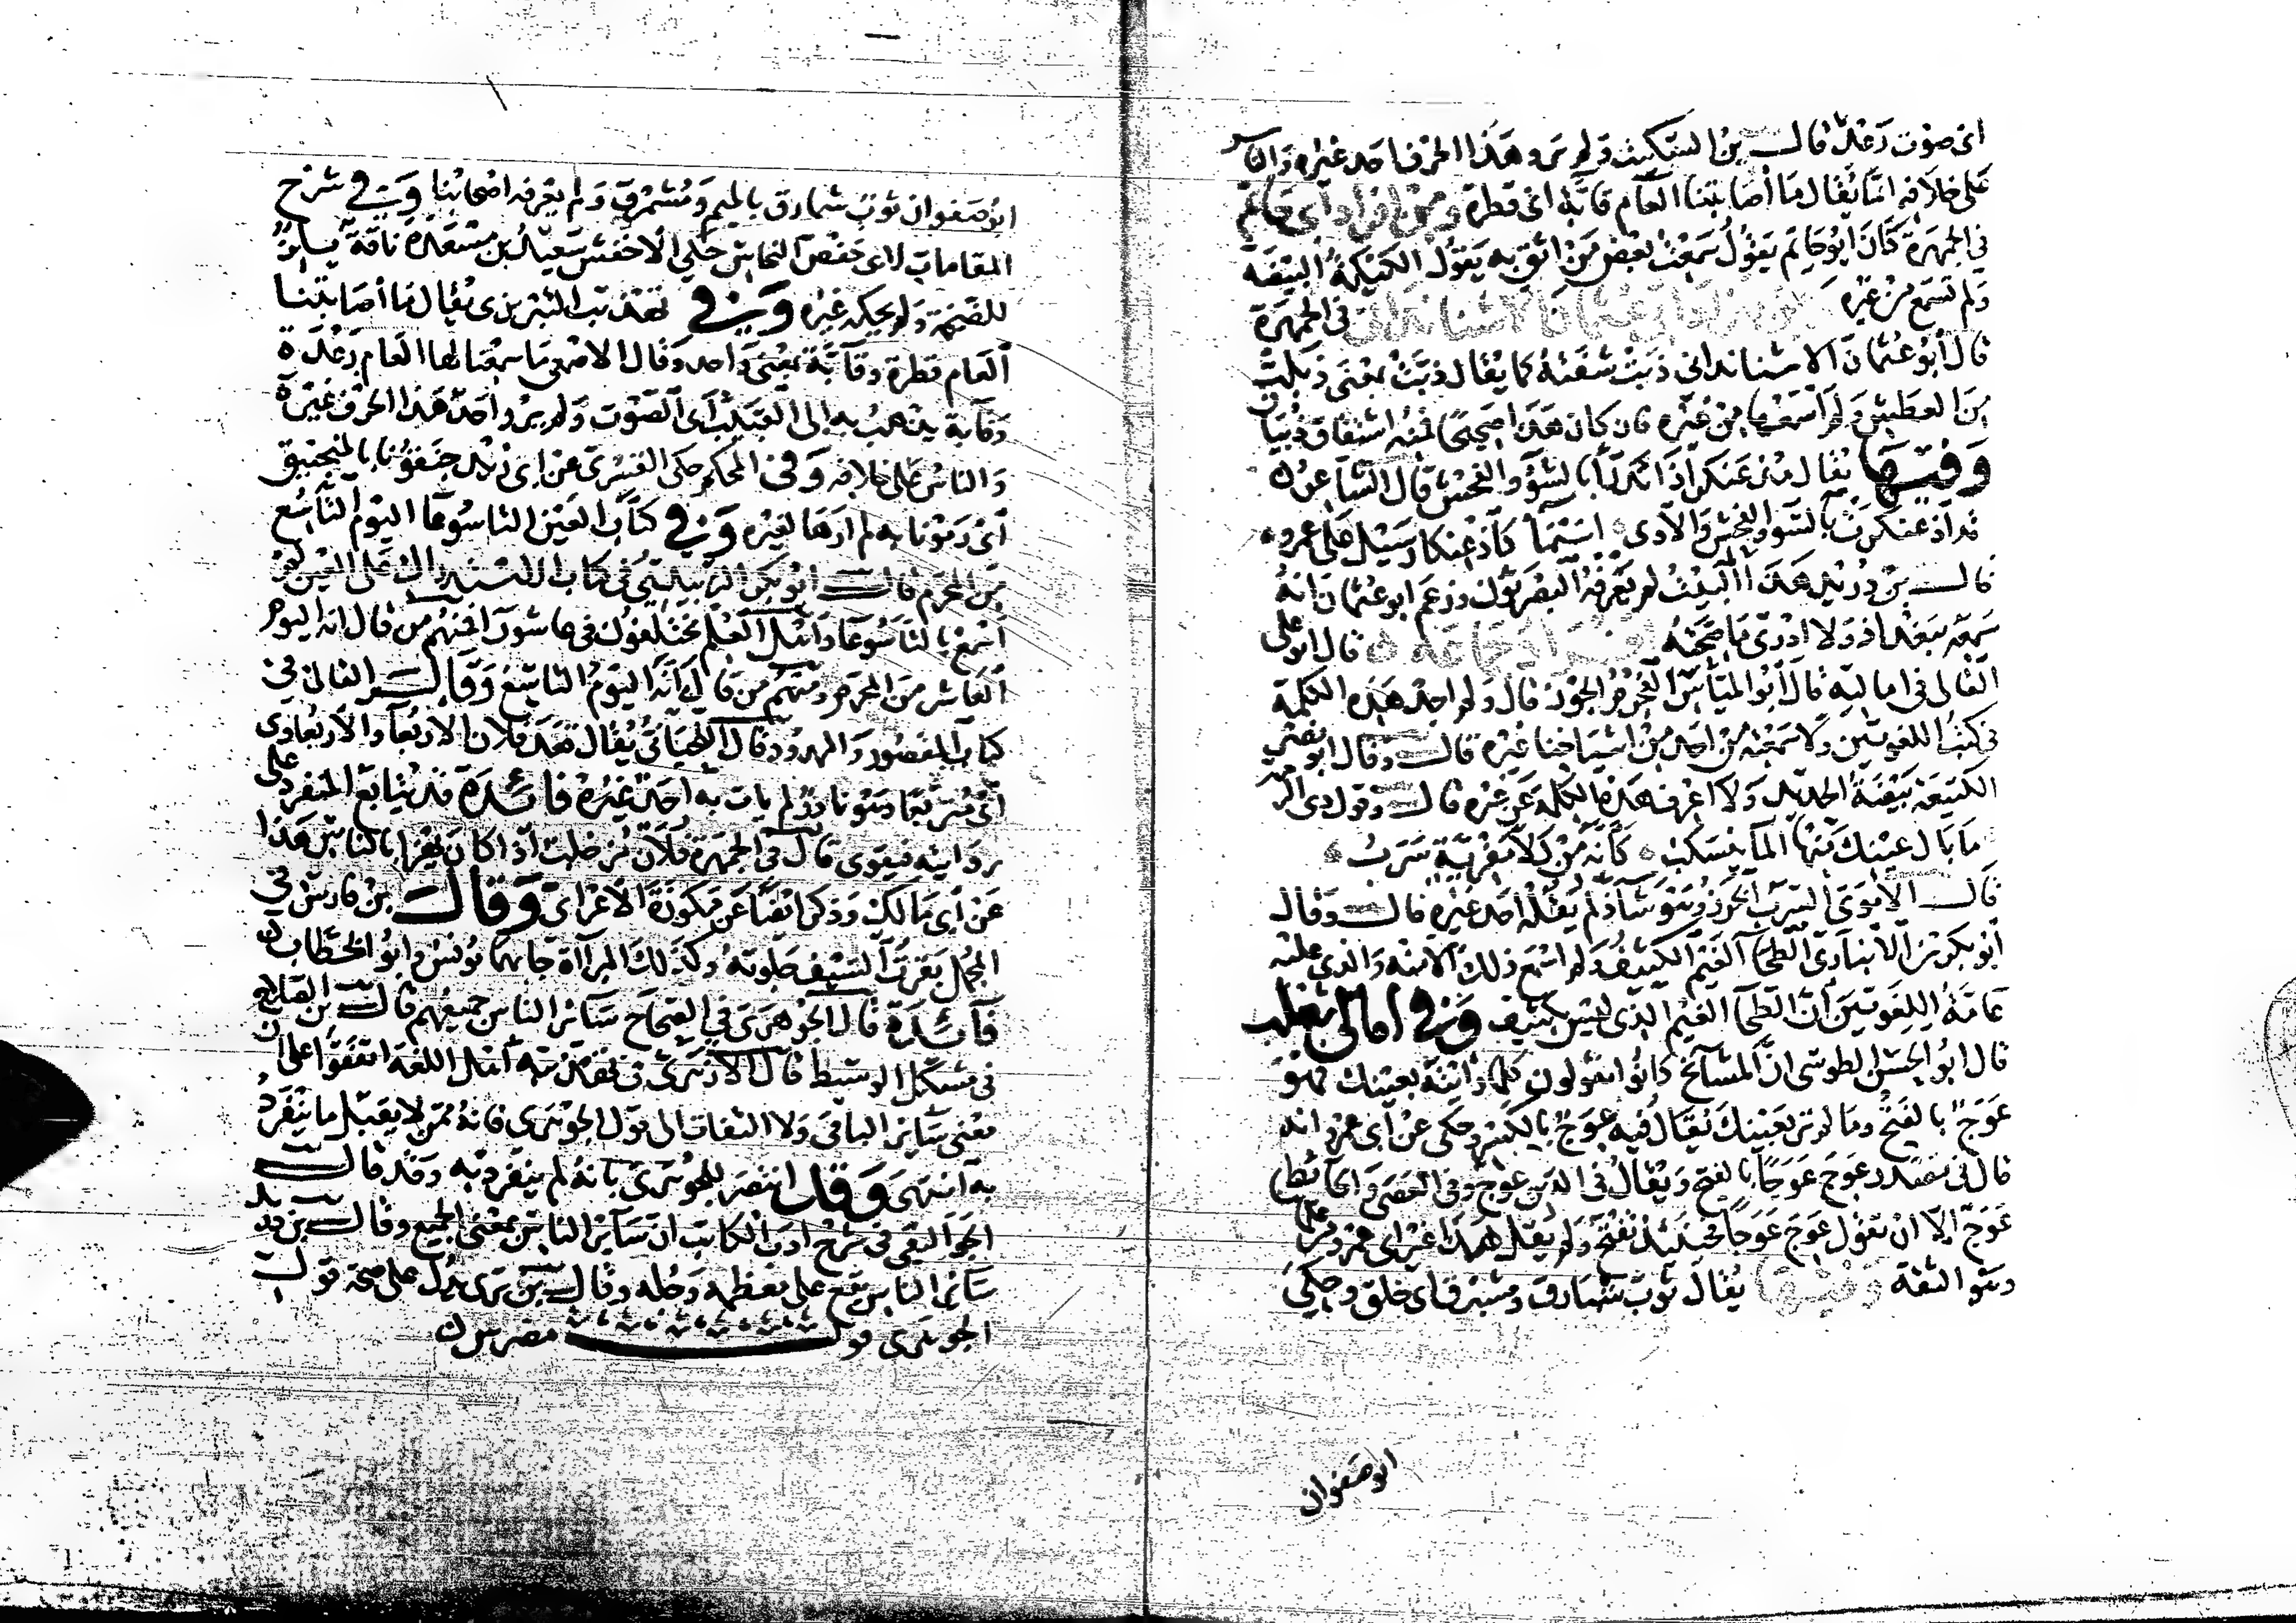 اى صوت رعد قال بن السكيت ولم يرو هذا الحرف احد غيره والناس
على خلافه انما يقال ما أصابتنا العام قابة اى قطرة ومن افراد أبى حاتم
فى الجمهرة كان ابو حاتم يقول سمعت بعض من اثق به يقول الكيكة البيضة
ولم تسمع من غيره الاشناندانى فى الجمهرة
قال أبو عثمان الاشناندانى ذبت شفته كما يقال ذبت بمعنى ذبلت
من العطش ولم أسمعها من غيره فان كان هذا صحيحا فمنه اشتقاق ذبيان
وفيها يقال عنكر اذا بالسوء والفحش قال الشاعر
قد بالسوء والفحش والاذى كاذ سيل على عمرو
قال بن دريد هذا البيت لم يعرفه البصريون وزعم ابو عثمان انه
سمعه ببغداذ ولا ادرى ما صحته افراد جماعه قال ابو على
القالى فى اماليه قال أبو المياس الجوذ قال ولم اجد هذه الكلمة
فى كتب اللغويين ولا سمعته من احد من اشياخنا غيره قال وقال ابو نصر
الكتيعة بيضة الحديد ولا اعرف هذه الكلمة عن غيره قال وقول ذى الرمة
ما بال عينك منها الما ينسكب كأنه من كلا مفرية سرب
قال الاموى السرب الخرز وهو شاذ لم يقله احد غيره قال وقال
أبو بكر بن الانبارى الطحا الغيم الكثيف ولم اسمع ذلك الا منه والذى عليه
عامة اللغويين أن الطحا الغيم الذى ليس بكثيف وفى أمالى ثعلب
قال ابو الحسن الطوسى ان المشايخ كانوا يقولون كلما رأيته بعينك فهو
عوج بالفتح وما لم تر بعينك يقال فيه عوج بالكسر وحكى عن أبى عمرو انه
قال فى مصدر عوج عوجا بالفتح ويقال فى الدين عوج وفى العصى والحائط
عوج الا ان تقول عوج عوجا فحينئذ تفتح ولم يقل هذا غير أبى عمرو من على
وهو الثقة وفيها يقال ثوب شبارق ومشبرق اى خلق وحكى
ابو صفوان
ابو صفوان ثوب شمارق بالميم ومشمرق ولم يعرفه اصحابنا وفى شرح
المقامات لابى جعفر النحاس حكى الاخفش سعيد بن مسعدة ناقة
للضخمة ولم يحكه غيره وفى تهذيب التبريزى يقال ما أصابتنا
العام قطرة وقابة بمعنى واحد وقال الاصمعى ما سمعنا لها العام رعدة
وقابة يذهب به الى القبيب أى الصوت ولم يرو احد هذا الحرف غيره
والناس على خلافه وفى المحكم حكى الفسرى عن ابى زيد جنقونا بالمنجنيق
اى رمونا به لم ارها لغيره وفى كتاب العين التاسوعا اليوم التاسع
من المحرم قال ابو بكر الزبيدى فى كتاب الاستدراك على العين لم
اسمع بالتاسوعا وأهل العلم مختلفون فى عاشورا فمنهم من قال انه اليوم
العاشر من المحرم ومنهم من قال انه اليوم التاسع وقال القالى فى
كتاب المقصور والممدود قال اللحيانى يقال قعد فلان الاربعا والاربعاوى
اى متربعا وهو نادر لم يأت به احد غيره فائدة قد يتابع المنفرد على
روايته فيقوى قال فى الجمهرة فلان خلت اذا كان يغرا بالناس هذا
عن أبى مالك وذكر ايضا عن مكوزة الاعرابى وقال بن فارس فى
المجمل بقرت السيف جلوته وكذلك المرآة جا بهما يونس وابو الخطاب
فائدة قال الجوهرى فى الصحاح سائر الناس جميعهم قال بن الصلاح
فى مشكل الوسيط قال الازهرى فى تهذيبه أهل اللغة اتفقوا على ان
معنى سائر الباقى ولا التفات الى قول الجوهرى فانه ممن لا يقبل ما ينفرد
به انتهى وقد انتصر للجوهرى بانه لم ينفرد به وقد قال
الجواليقى فى شرح ادب الكاتب ان سائر الناس بمعنى الجميع وقال بن دريد
سائر الناس يقع على معظمه وجله وقال بن برى يدل على صحة قول
الجوهرى قول مضرس